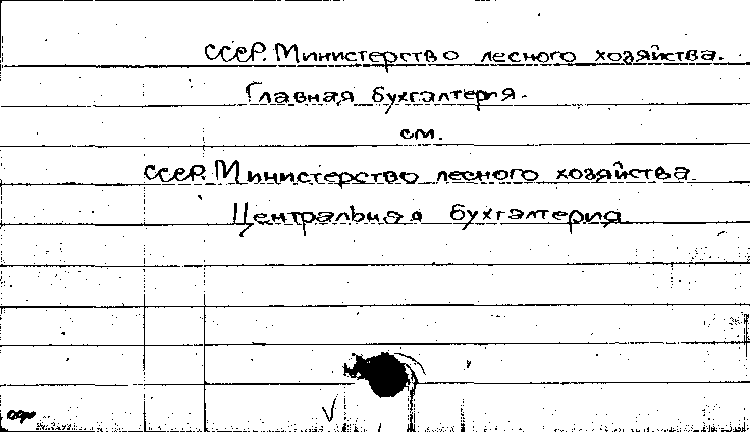 СССР. Министерство лесного хозяйства.
Главная бухгалтерия.
см.
СССР. Министерство лесного хозяйства
Центральная бухгалтерия